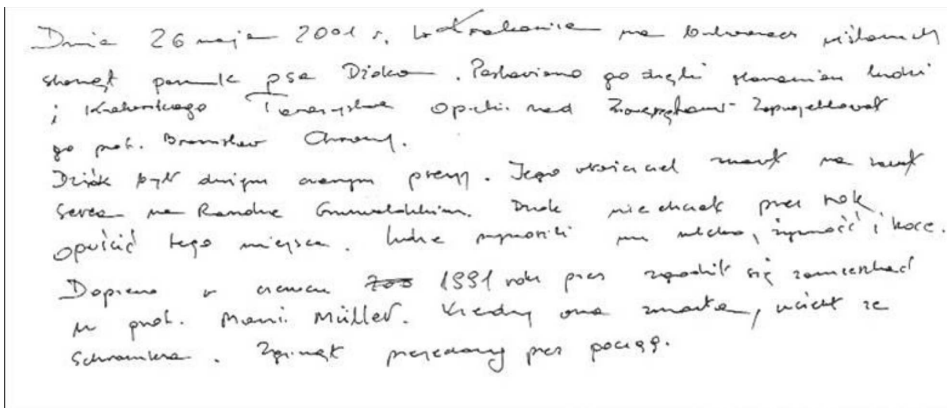 Dnia 26 maja 2001 r. w Krakowie na bulwarach wiślanych
stanął pomnik psa Dżoka. Postawiono go dzięki staraniom ludzi
i Krakowskiego Towarzystwa Opieki nad Zwierzętami. Zaprojektował
go prof. Bronisław Chromy.
Dżok był dużym czarnym psem. Jego właściciel zmarł na zawał
serca na Rondzie Grunwaldzkim. Dżok nie chciał przez rok
opuścić tego miejsca. Ludzie przynosili mu mleko, żywność i koce.
Dopiero w czerwcu 1991 roku pies zgodził się zamieszkać
u prof. Marii Müller. Kiedy ona zmarła, uciekł ze
schroniska. Zginął przejechany przez pociąg.